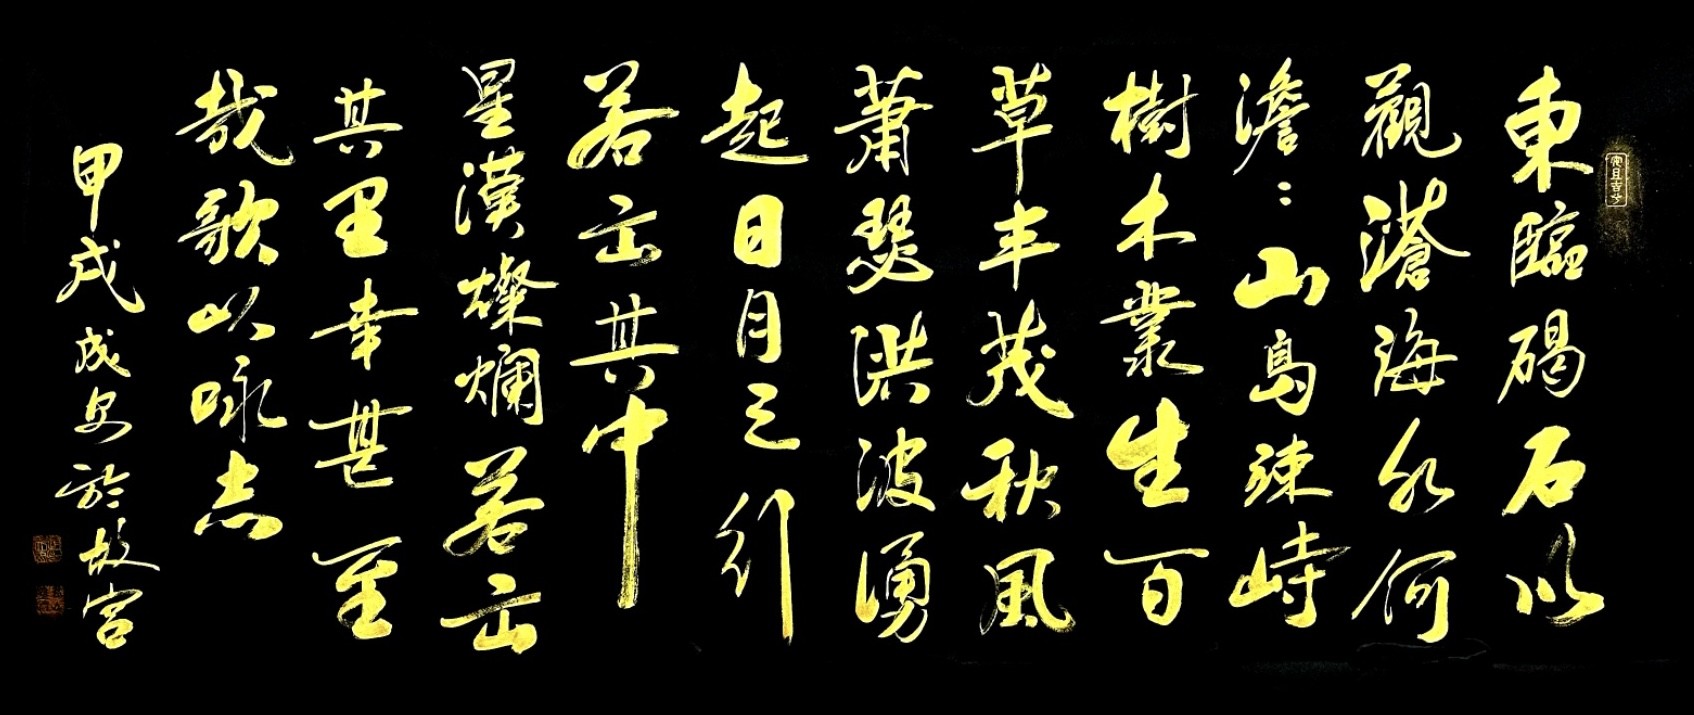 安且吉兮
東臨碣石以
觀滄海水何
澹:山島竦峙
樹木叢生百
草丰茂秋風
蕭瑟洪波湧
起日月之行
若出其中
星漢燦爛若出
其里幸甚至
哉歌以咏志
甲戌成於故宮